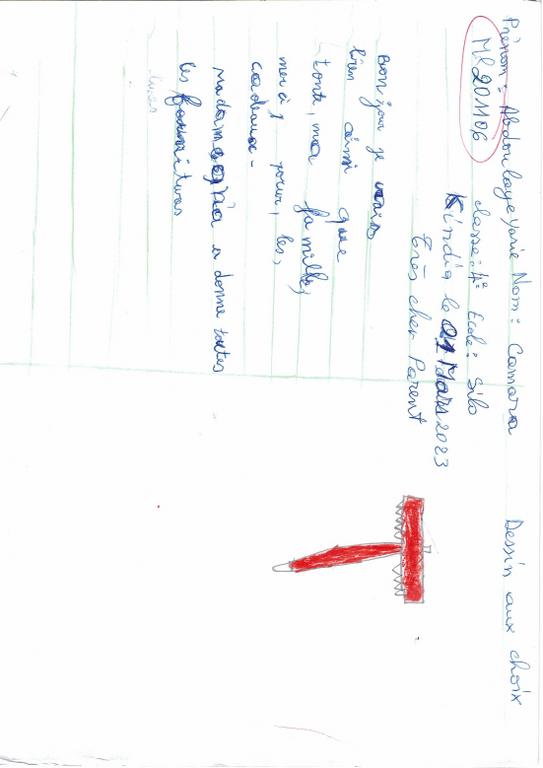 Prénom: Abdoulaye Yarie Nom: Camara
Dessin aux choix
ML201106
classe: 4e Ecole: Silo
Kindia le 01 Mars 2023
très cher Parent
Bonjour je vais
bien aimi que
tonte, ma famille,
merci, pour, les,
cadeaux -
Madam a donne toutes
les fournitures